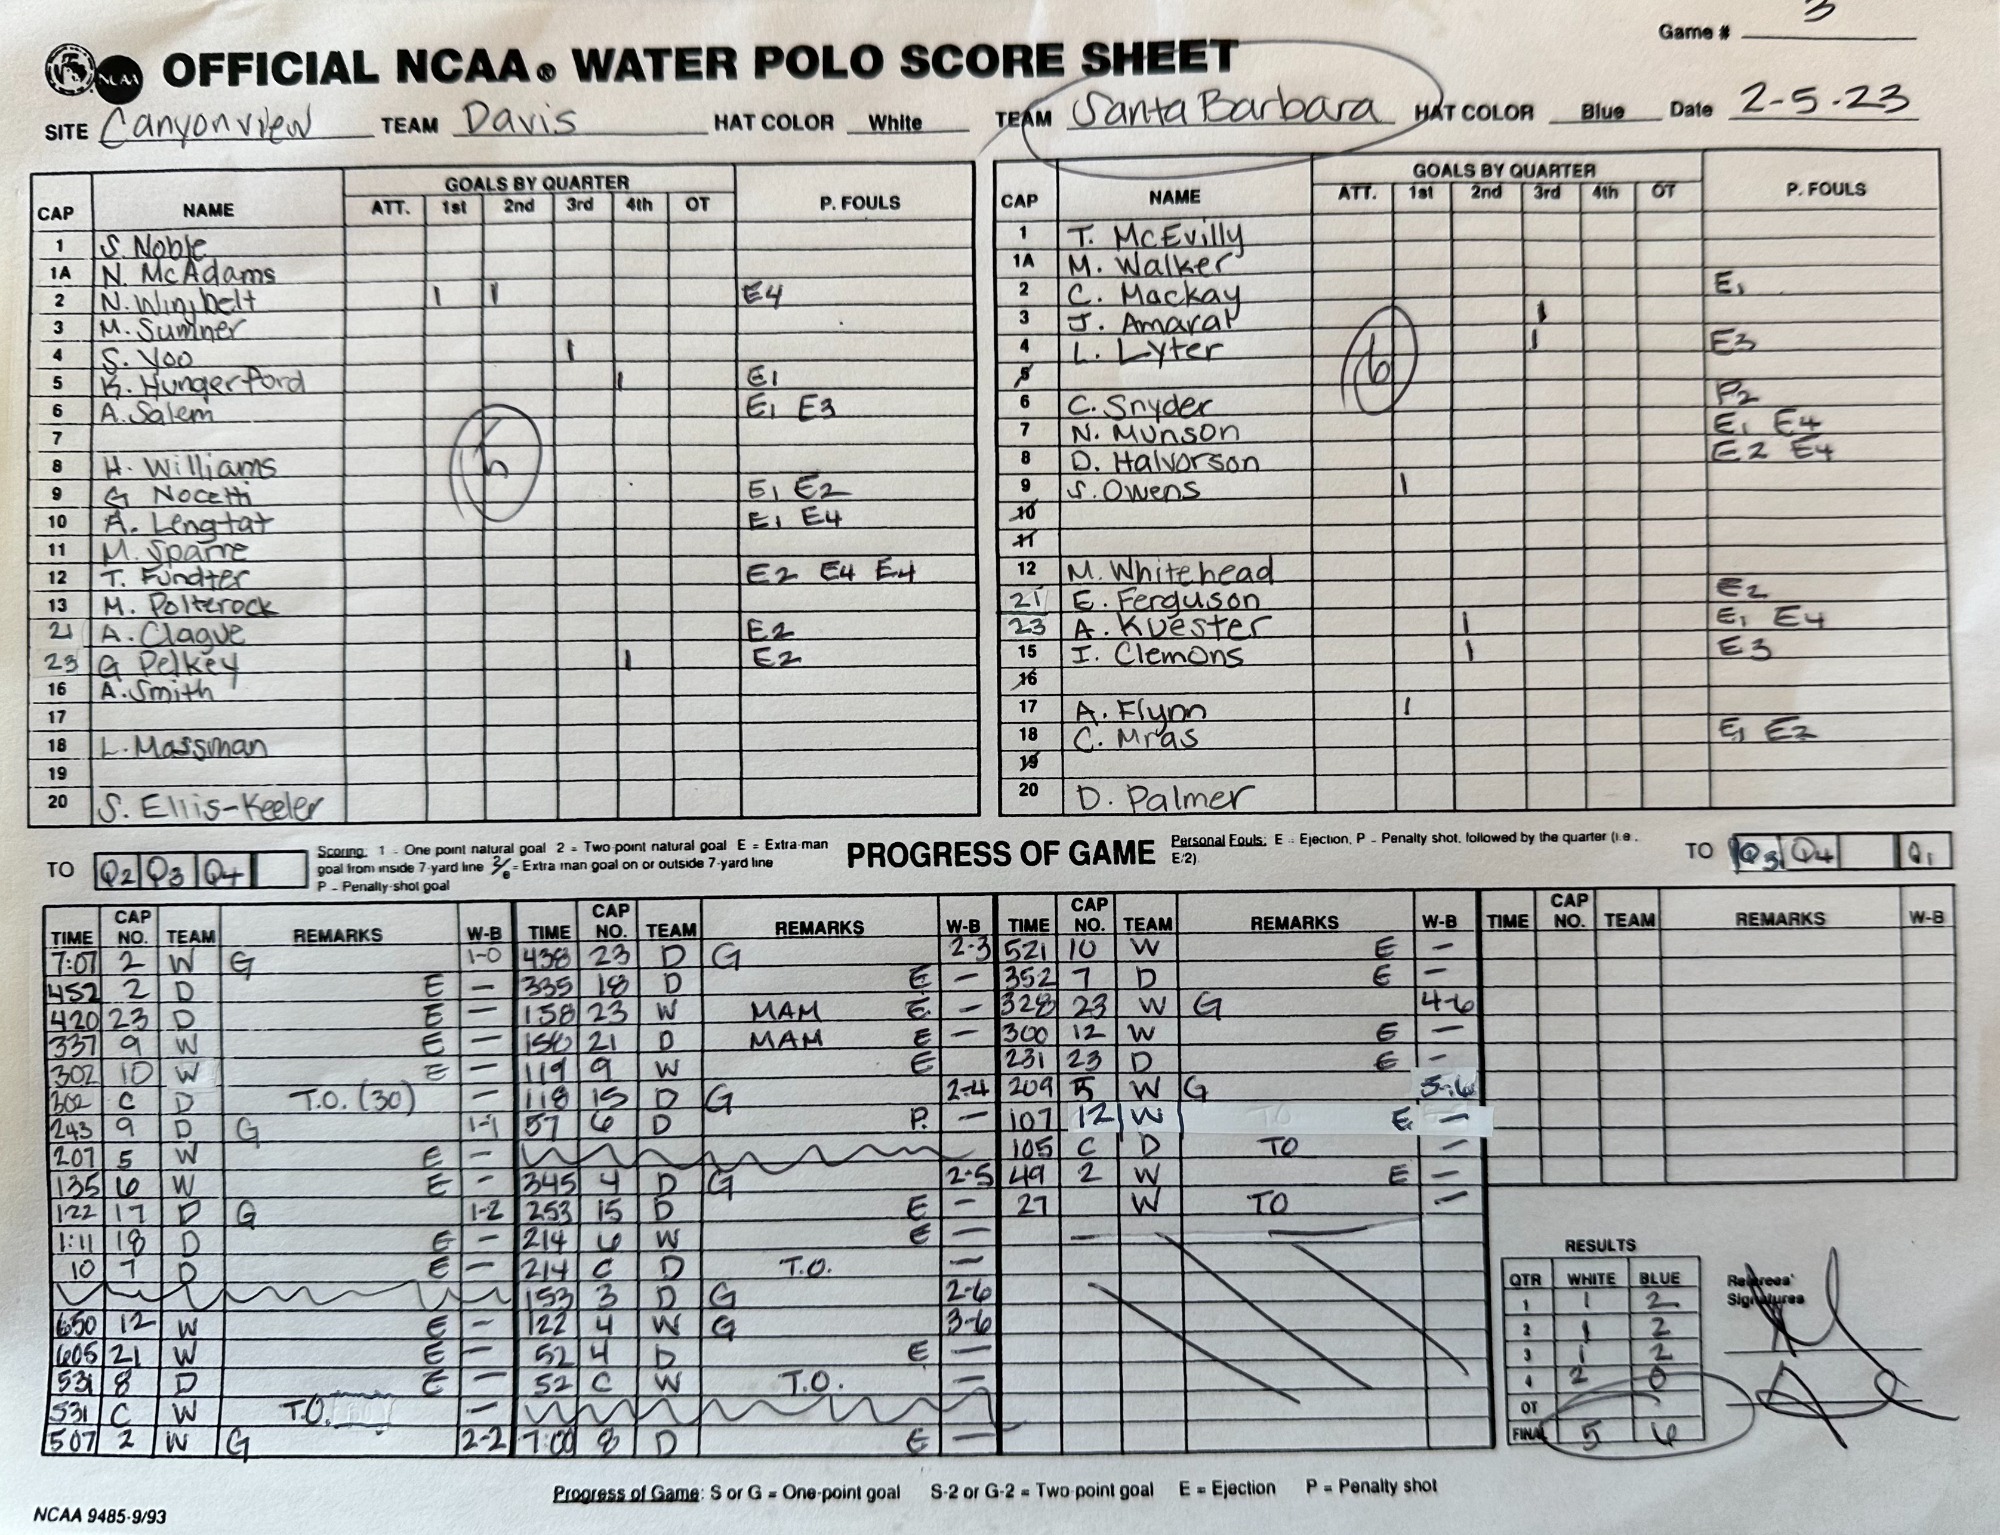 Game # 3
NCAA OFFICIAL NCAA® WATER POLO SCORE SHEET
SITE Canyonview TEAM Davis HAT COLOR White TEAM Santa Barbara HAT COLOR Blue Date 2-5-23
CAP NAME GOALS BY QUARTER P. FOULS
ATT. 1st 2nd 3rd 4th OT
1 S. Noble
1A N. McAdams
2 N. Winjbelt I I E4
3 M. Sumner
4 S. Yoo I
5 K. Hungerford I E1
6 A. Salem E1 E3
7
8 H. Williams
9 G Nocetti E1 E2
10 A. Lengtat E1 E4
11 M. Sparre
12 T. Fundter E2 E4 E4
13 M. Polterock
21 A. Clague E2
23 G Pelkey I E2
16 A. Smith
17
18 L. Massman
19
20 S. Ellis-Keeler
5
CAP NAME GOALS BY QUARTER P. FOULS
ATT. 1st 2nd 3rd 4th OT
1 T. McEvilly
1A M. Walker
2 C. Mackay E1
3 J. Amaral I
4 L. Lyter I E3
5
6 C. Snyder P2
7 N. Munson E1 E4
8 D. Halvorson E2 E4
9 S. Owens I
10
11
12 M. Whitehead
21 E. Ferguson E2
23 A. Kuester I E1 E4
15 I. Clemons I E3
16
17 A. Flynn I
18 C. Mras E1 E2
19
20 D. Palmer
6
TO Q2 Q3 Q4
Scoring: 1 - One point natural goal 2 = Two-point natural goal E = Extra-man
goal from inside 7-yard line 2/e = Extra man goal on or outside 7-yard line
P - Penalty-shot goal
PROGRESS OF GAME
Personal Fouls: E - Ejection, P - Penalty shot, followed by the quarter (i.e.,
E/2).
TO Q3 Q4 Q1
TIME CAP NO. TEAM REMARKS W-B
7:07 2 W G 1-0
452 2 D E -
420 23 D E -
337 9 W E -
302 10 W E -
302 C D T.O. (30) -
243 9 D G 1-1
207 5 W E -
135 6 W E -
122 17 D G 1-2
1:11 18 D E -
10 7 D E -
650 12 W E -
605 21 W E -
531 8 D E -
531 C W T.O. -
507 2 W G 2-2
TIME CAP NO. TEAM REMARKS W-B
438 23 D G 2-3
335 18 D E -
158 23 W MAM E -
158 21 D MAM E -
119 9 W E
118 15 D G 2-4
57 6 D P. -
345 4 D G 2-5
253 15 D E -
214 6 W E -
214 C D T.O. -
153 3 D G 2-6
122 4 W G 3-6
52 4 D E -
52 C W T.O. -
7:00 8 D E -
TIME CAP NO. TEAM REMARKS W-B
521 10 W E -
352 7 D E -
328 23 W G 4-6
300 12 W E -
231 23 D E -
209 5 W G 5-6
107 12 W E -
105 C D TO -
49 2 W E -
27 W TO -
TIME CAP NO. TEAM REMARKS W-B
RESULTS
QTR WHITE BLUE
1 1 2
2 1 2
3 1 2
4 2 0
OT
FINAL 5 6
Referees'
Signatures
Progress of Game: S or G = One-point goal S-2 or G-2 = Two-point goal E = Ejection P = Penalty shot
NCAA 9485-9/93